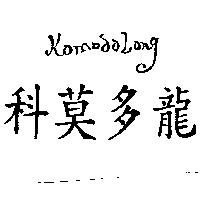 KomodoLong
科莫多龍